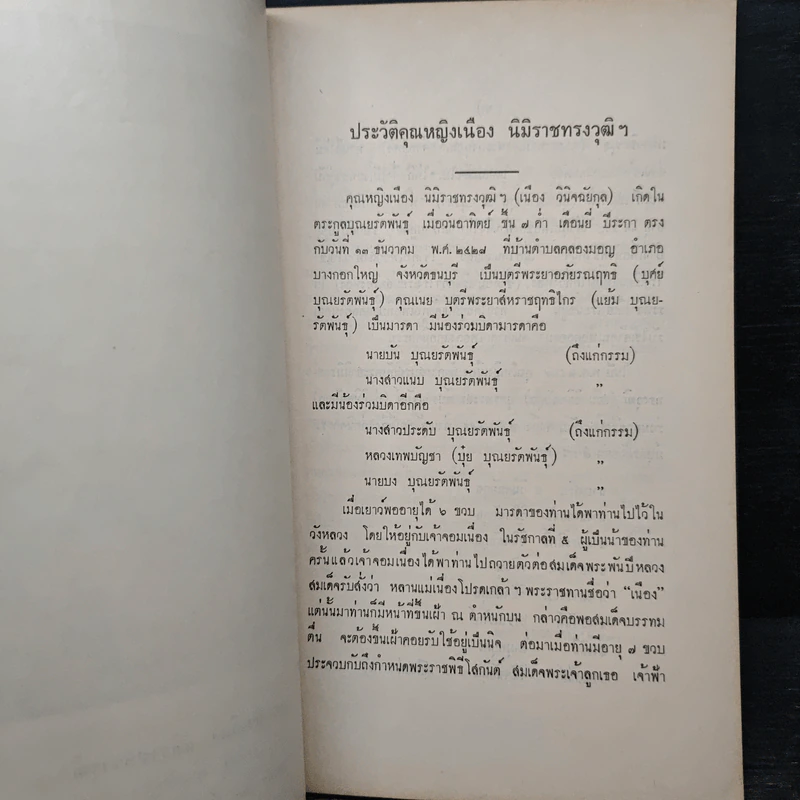 ประวัติคุณหญิงเนื่อง นิมิราชทรงวุฒิฯ
คุณหญิงเนื่อง นิมิราชทรงวุฒิฯ (เนื่อง วินิจฉัยกุล) เกิดใน
ตระกูลบุณยรัตพันธุ์ เมื่อวันอาทิตย์ ขึ้น ๗ ค่ำ เดือนยี่ ปีระกา ตรง
กับวันที่ ๑๓ ธันวาคม พ.ศ. ๒๔๒๘ ที่บ้านตำบลคลองมอญ อำเภอ
บางกอกใหญ่ จังหวัดธนบุรี เป็นบุตรีพระยาอภัยรณฤทธิ (บุศย์
บุณยรัตพันธุ์) คุณเนย บุตรีพระยาสีหราชฤทธิไกร (แย้ม บุณย-
รัตพันธุ์) เป็นมารดา มีน้องร่วมบิดามารดาคือ
นายบัน บุณยรัตพันธุ์ (ถึงแก่กรรม)
นางสาวแนบ บุณยรัตพันธุ์ ,,
และมีน้องร่วมบิดาอีกคือ
นางสาวประดับ บุณยรัตพันธุ์ (ถึงแก่กรรม)
หลวงเทพบัญชา (บุ๋ย บุณยรัตพันธุ์) ,,
นายบง บุณยรัตพันธุ์ ,,
เมื่อเยาว์พออายุได้ ๖ ขวบ มารดาของท่านได้พาท่านไปไว้ใน
วังหลวง โดยให้อยู่กับเจ้าจอมเนื่อง ในรัชกาลที่ ๕ ผู้เป็นน้าของท่าน
ครั้นแล้วเจ้าจอมเนื่องได้พาท่านไปถวายตัวต่อสมเด็จพระพันปีหลวง
สมเด็จรับสั่งว่า หลานแม่เนื่องโปรดเกล้าฯ พระราชทานชื่อว่า “เนื่อง”
แต่นั้นมาท่านก็มีหน้าที่ขึ้นเฝ้า ณ ตำหนักบน กล่าวคือพอสมเด็จบรรทม
ตื่น จะต้องขึ้นเฝ้าคอยรับใช้อยู่เป็นนิจ ต่อมาเมื่อท่านมีอายุ ๗ ขวบ
ประจวบกับถึงกำหนดพระราชพิธีโสกันต์ สมเด็จพระเจ้าลูกเธอ เจ้าฟ้า